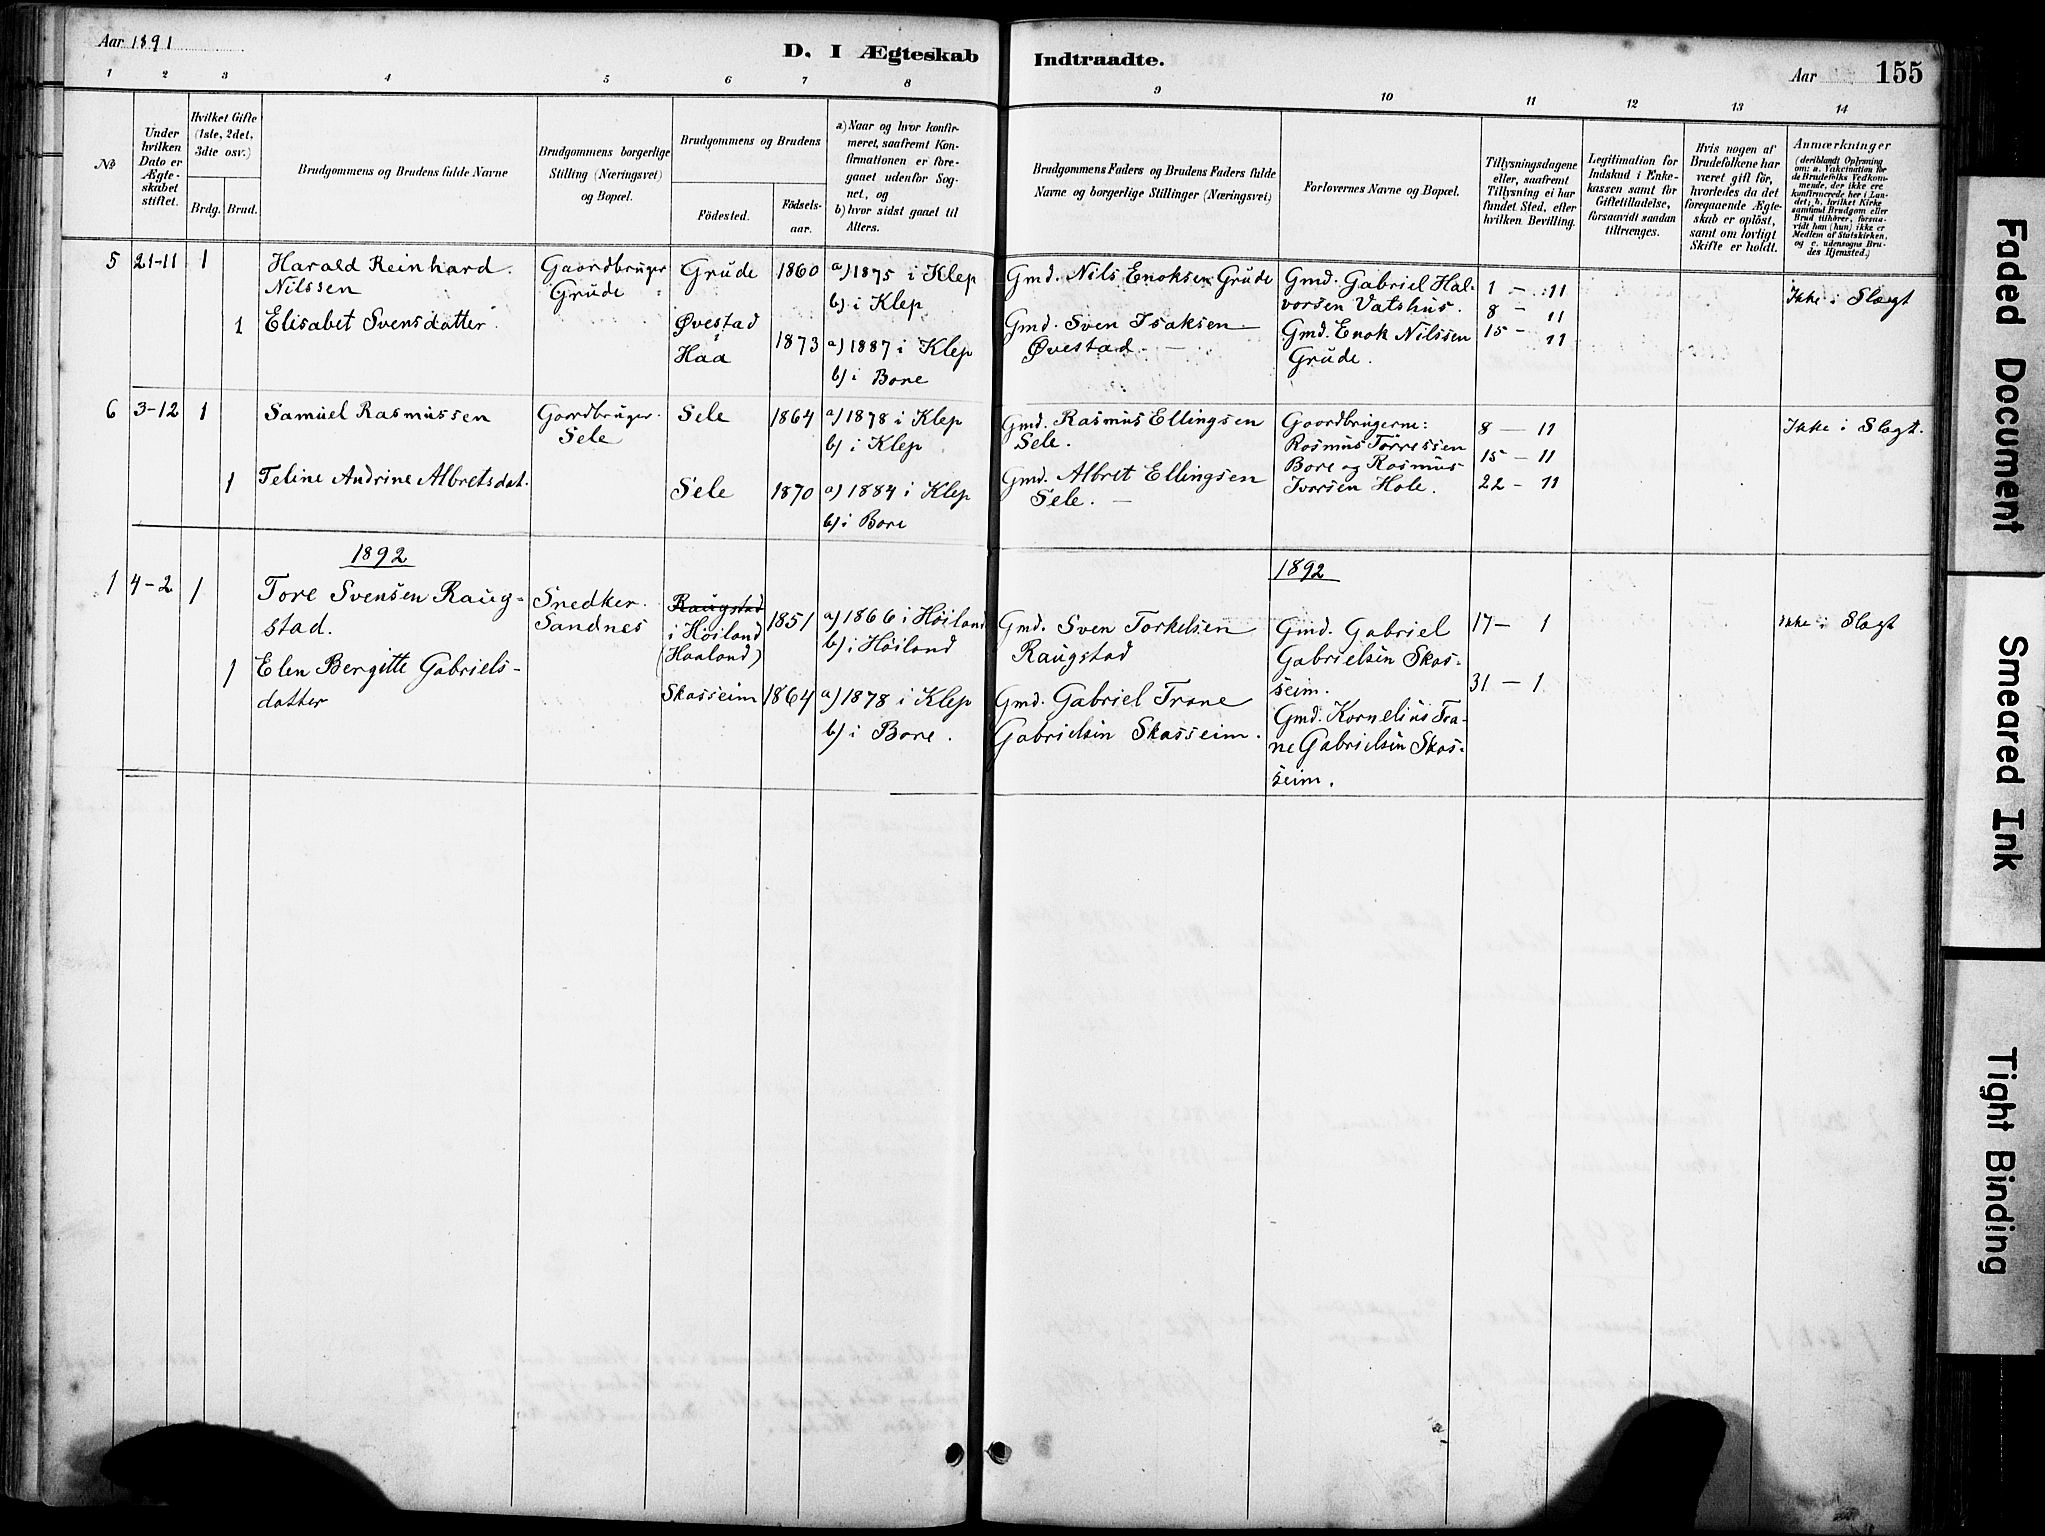 Aar 1891
D. I Ægteskab Indtraadte.
Aar 155
1 2 3 4 5 6 7 8 9 10 11 12 13 14
No
Under hvilken Dato er Ægte-skabet stiftet.
Hvilket Gifte (1ste, 2det, 3die osv.)
Brdg. Brud.
Brudgommens og Brudens fulde Navne
Brudgommens borgerlige Stilling (Næringsvei) og Bopæl.
Brudgommens og Brudens
Fødested.
Fødsels-aar.
a) Naar og hvor konfir-meret, saafremt Kon-firmationen er fore-gaaet udenfor Sog-net, og
b) hvor sidst gaaet til Alters.
Brudgommens Faders og Brudens Faders fulde Navne og borgerlige Stillinger (Næringsvei)
Forlovernes Navne og Bopæl.
Tillysningsdagene eller, saafremt Tillysning ei har fundet Sted, efter hvilken Bevilling.
Legitimation for Indskud i Enke-kassen samt for Giftetilladelse, forsaavidt saadan tiltrænges.
Hvis nogen af Brudefolkene har været gift før, hvorledes da det foregaaende Ægte-skab er opløst, samt om lovligt Skifte er holdt.
Anmærkninger
(deriblandt Oplysning om: a. Vakcination for de Brudefolks Vedkom-mende, der ikke ere konfirmerede her i Lan-det; b. hvilket Kirke-samfund Brudgom eller Brud tilhører, forsaa-vidt han (hun) ikke er Medlem af Statskirken, og c. udensogns Bru-des Hjemsted.)
5 21-11 1 Harald Reinhard Nilssen
Gaardbruger Grude
Grude 1860
a) 1875 i Klep
b) i Klep
Gmd. Nils Enoksen Grude
Gmd. Gabriel Hal-vorsen Vatshus.
Gmd. Enok Nilssen Grude.
1 - 11
8 - 11
15 - 11
Ikke i Slægt
1 Elisabet Svensdatter
Øvestad i Haa 1873
a) 1887 i Klep
b) i Bore
Gmd. Sven Isaksen Øvestad
6 3-12 1 Samuel Rasmussen
Gaardbruger Sele
Sele 1864
a) 1878 i Klep
b) i Klep
Gmd. Rasmus Ellingsen Sele.
Gaardbrugerne: Rasmus Tørressen Bore og Rasmus Ivarsen Hole.
8 - 11
15 - 11
22 - 11
Ikke i Slægt.
1 Teline Andrine Albretsdat.
Sele 1870
a) 1884 i Klep
b) i Bore
Gmd. Albret Ellingsen Sele. -
1892
1892
1 4-2 1 Tore Svensen Raug-stad.
Snedker. Sandnes
Raugstad i Høiland (Haaland) 1851
a) 1866 i Høiland
b) i Høiland
Gmd. Sven Torkelsen Raugstad
Gmd. Gabriel Gabrielsen Skas-seim.
Gmd. Kornelius Tra-ne Gabrielsen Skas-seim.
17 - 1
31 - 1
Ikke i Slægt
1 Elen Bergitte Gabriels-datter
Skasseim 1864
a) 1878 i Klep
b) i Bore.
Gmd. Gabriel Trane Gabrielsen Skasseim.
Faded Document
Smeared Ink
Tight Binding